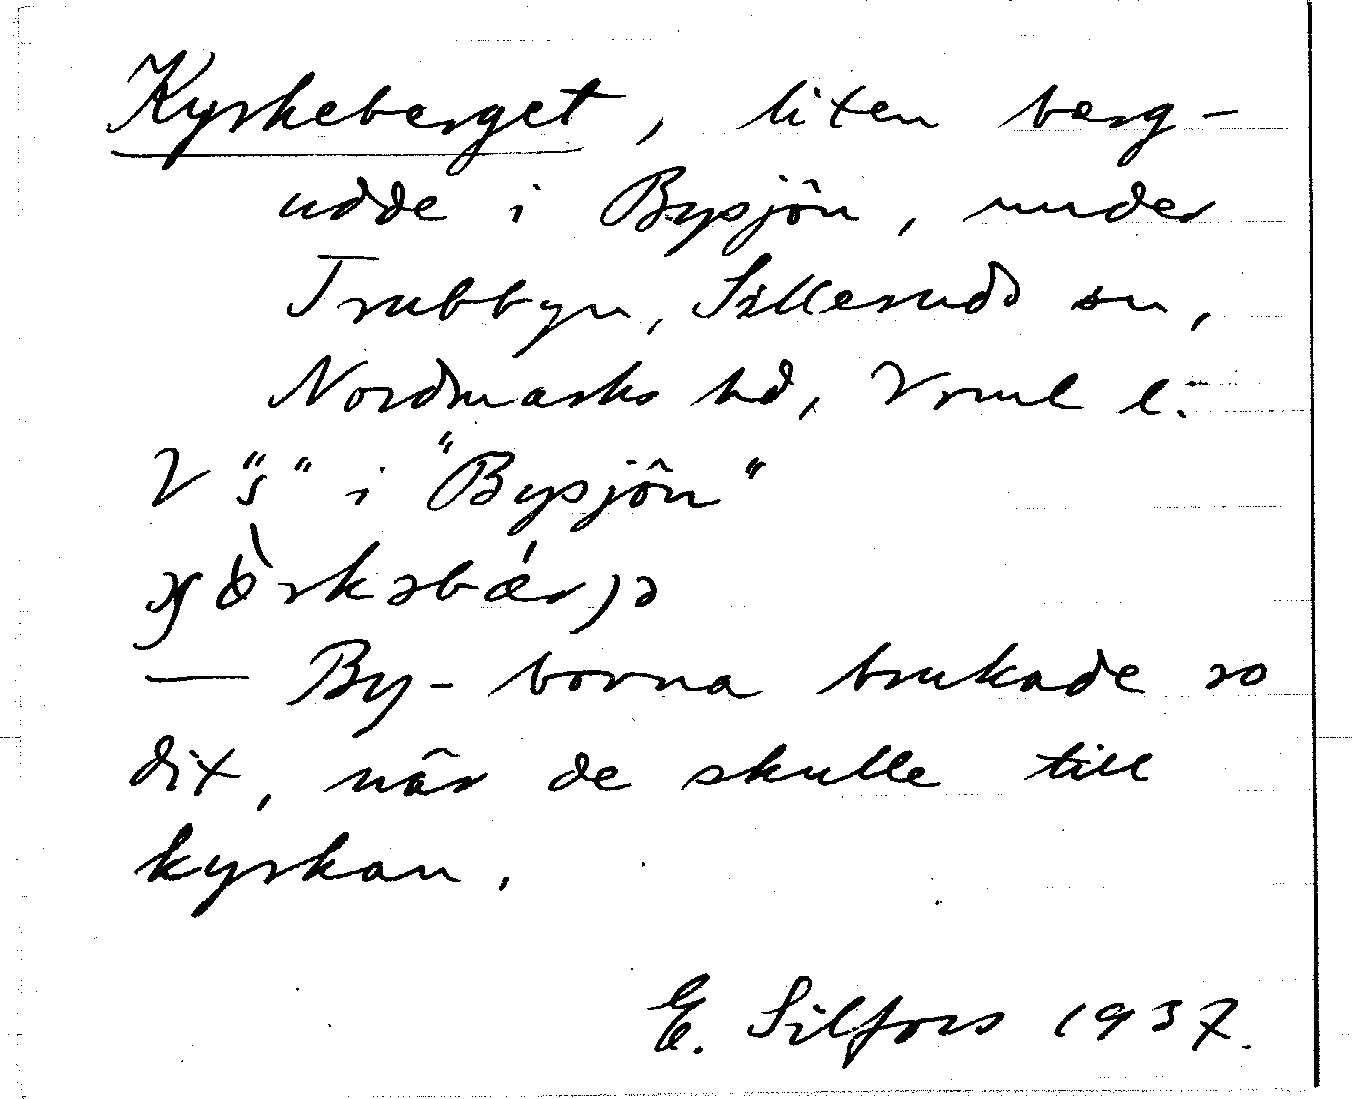 Kyrkeberget, liten berg-
udde i Bysjön, under
Trubbyn, Sillerudd sn,
Nordmarks hd, Vrml l.
V "s" i "Bysjön"
— By-borna brukade ro
dit, när de skulle till
kyrkan.
E. Silfors 1937.